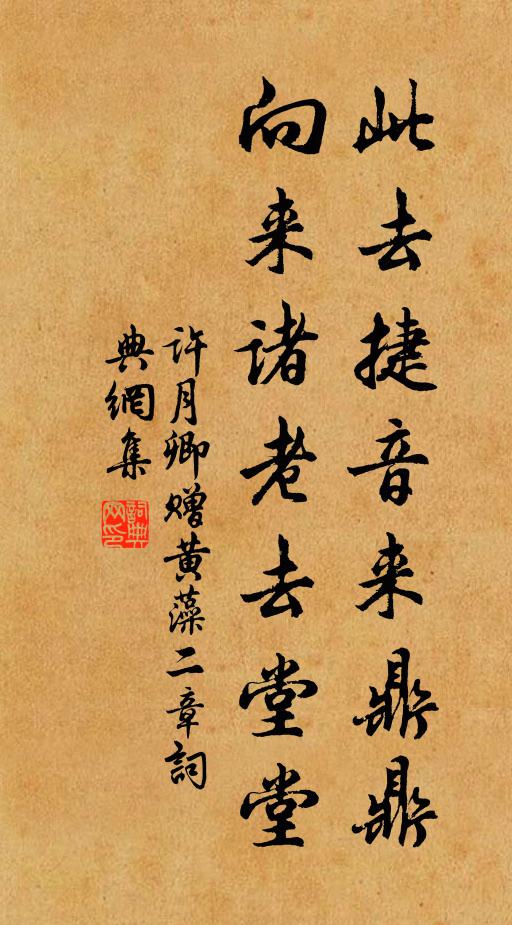 此去捷音来鼎鼎
向来诸老去堂堂
许月卿赠黄藻二章詞
典網集
詞典網印